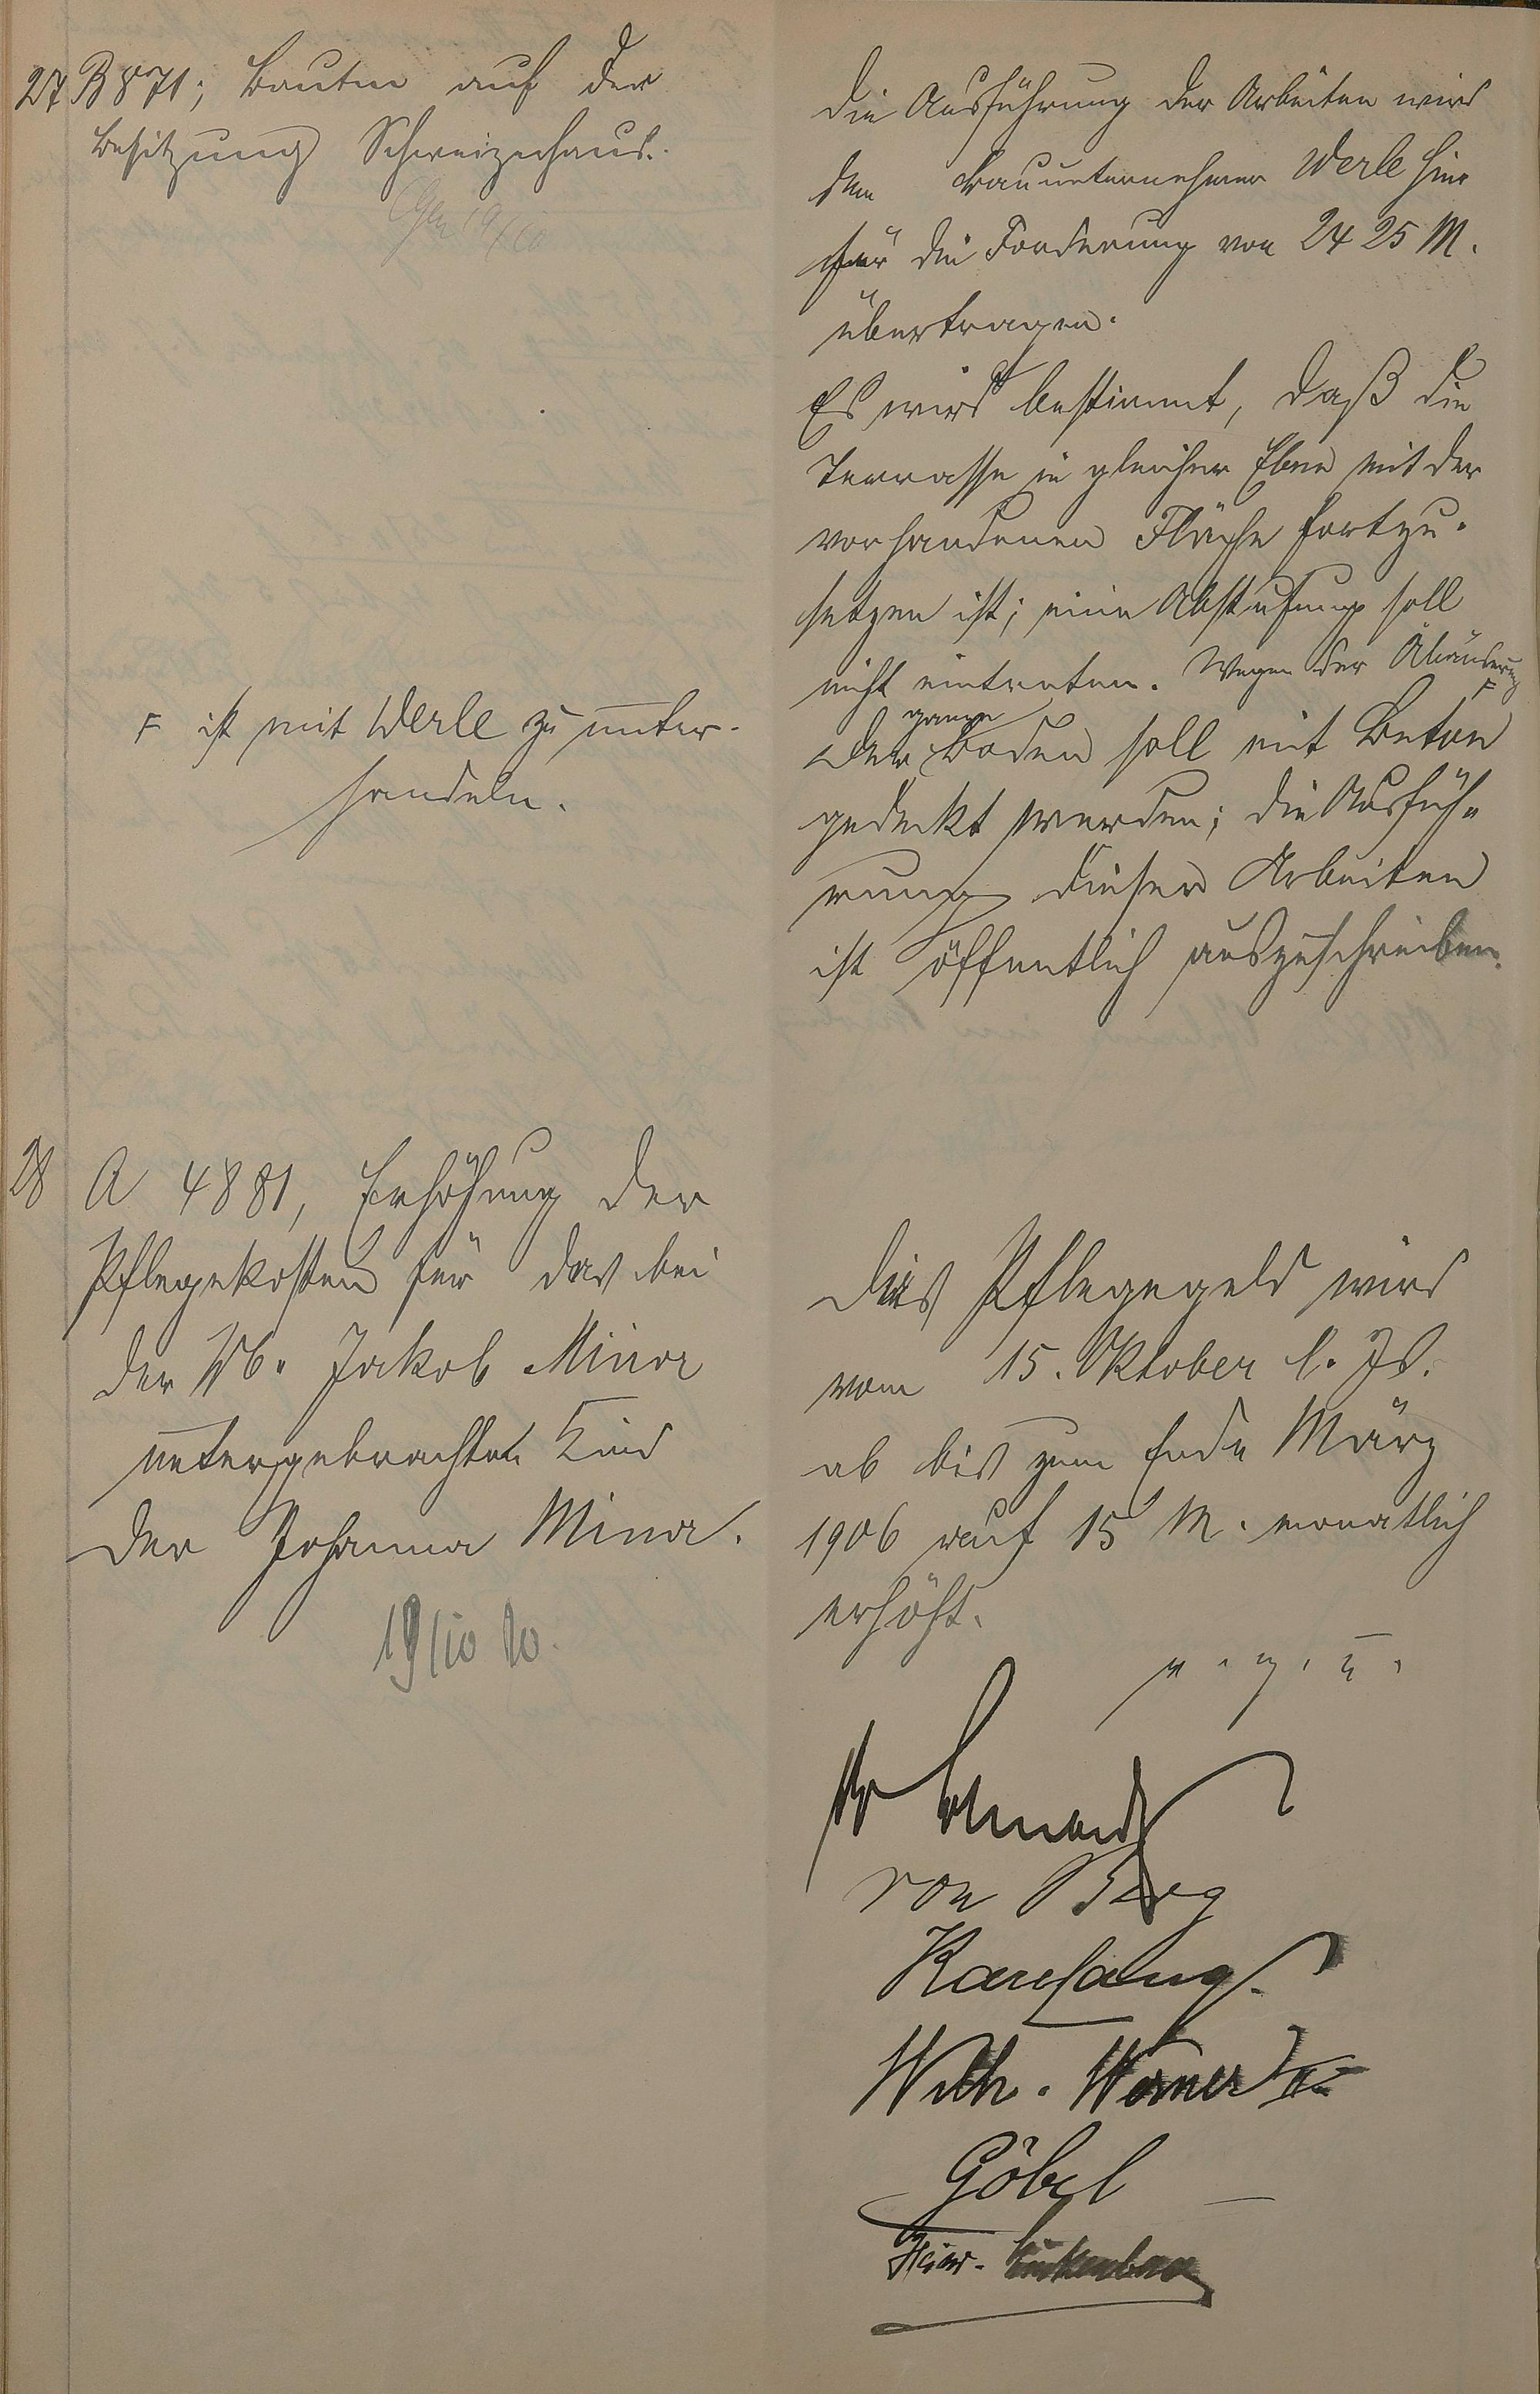 27 B 871; Bauten auf der
Besitzung Schweizerhaus.
Die Ausführung der Arbeiten wird
dem Bauunternehmer Werle hier
für die Forderung von 2425 M.
übertragen.
Es wird bestimmt, daß die
Terrasse in gleicher Ebene mit der
vorhandenen Fläche fortzu-
setzen ist; eine Abstufung soll
nicht eintreten. Wegen der Abänderung F
F ist mit Werle zu unter-
handeln.
Der ganze Boden soll mit Beton
gedeckt werden; die Ausfüh-
rung dieser Arbeiten
ist öffentlich auszuschreiben.
28 A 4881, Erhöhung der
Pflegekosten für das bei
der Wb. Jakob Minor
untergebrachte Kind
der Johanna Minor.
19/10
Das Pflegegeld wird
vom 15. Oktober l. Js.
ab bis zum Ende März
1906 auf 15 M. monatlich
erhöht.
v. g. u.
von Berg
Karl Lang
Wilh. Werner
Göbel
Heinr.